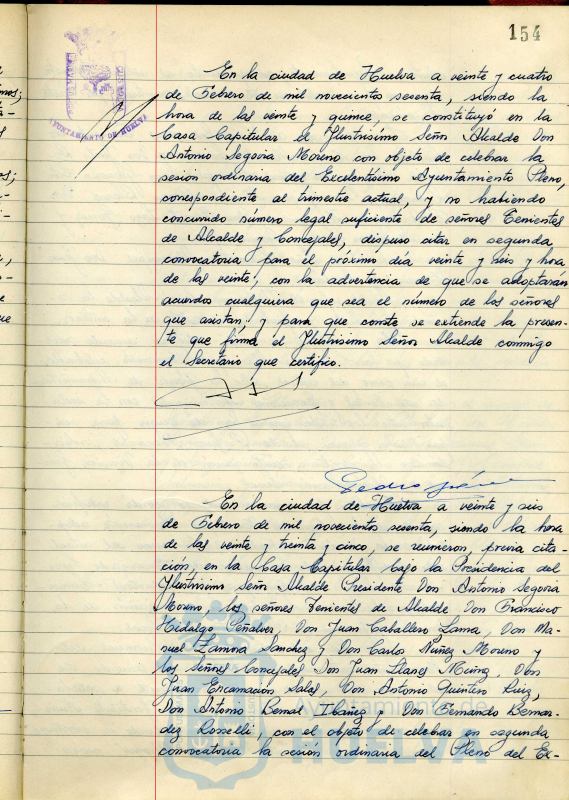 154
AYUNTAMIENTO DE HUELVA
En la ciudad de Huelva a veinte y cuatro
de Febrero de mil novecientos sesenta, siendo la
hora de las veinte y quince, se constituyó en la
Casa Capitular el Ilustrísimo Señor Alcalde Don
Antonio Segovia Moreno con objeto de celebrar la
sesión ordinaria del Excelentísimo Ayuntamiento Pleno,
correspondiente al trimestre actual, y no habiendo
concurrido número legal suficiente de señores Tenientes
de Alcalde y Concejales, dispuso citar en segunda
convocatoria para el próximo día veinte y seis y hora
de las veinte, con la advertencia de que se adoptarán
acuerdos cualquiera que sea el número de los señores
que asistan y para que conste se extiende la presen-
te que firma el Ilustrísimo Señor Alcalde conmigo
el Secretario que certifico.
Pedro
En la ciudad de Huelva a veinte y seis
de Febrero de mil novecientos sesenta, siendo la hora
de las veinte y treinta y cinco, se reunieron, previa cita-
ción, en la Casa Capitular bajo la Presidencia del
Ilustrísimo Señor Alcalde Presidente Don Antonio Segovia
Moreno, los señores Tenientes de Alcalde Don Francisco
Hidalgo Peñalver, Don Juan Caballero Lama, Don Ma-
nuel Zamora Sánchez y Don Carlos Núñez Moreno y
los Señores Concejales Don Juan Llanes Muñoz, Don
Juan Encarnación Salas, Don Antonio Quintero Ruiz,
Don Antonio Bernal Ibáñez y Don Fernando Bermu-
dez Rosselli, con el objeto de celebrar en segunda
convocatoria la sesión ordinaria del Pleno del Ex-
Ayuntamiento de
HUELVA